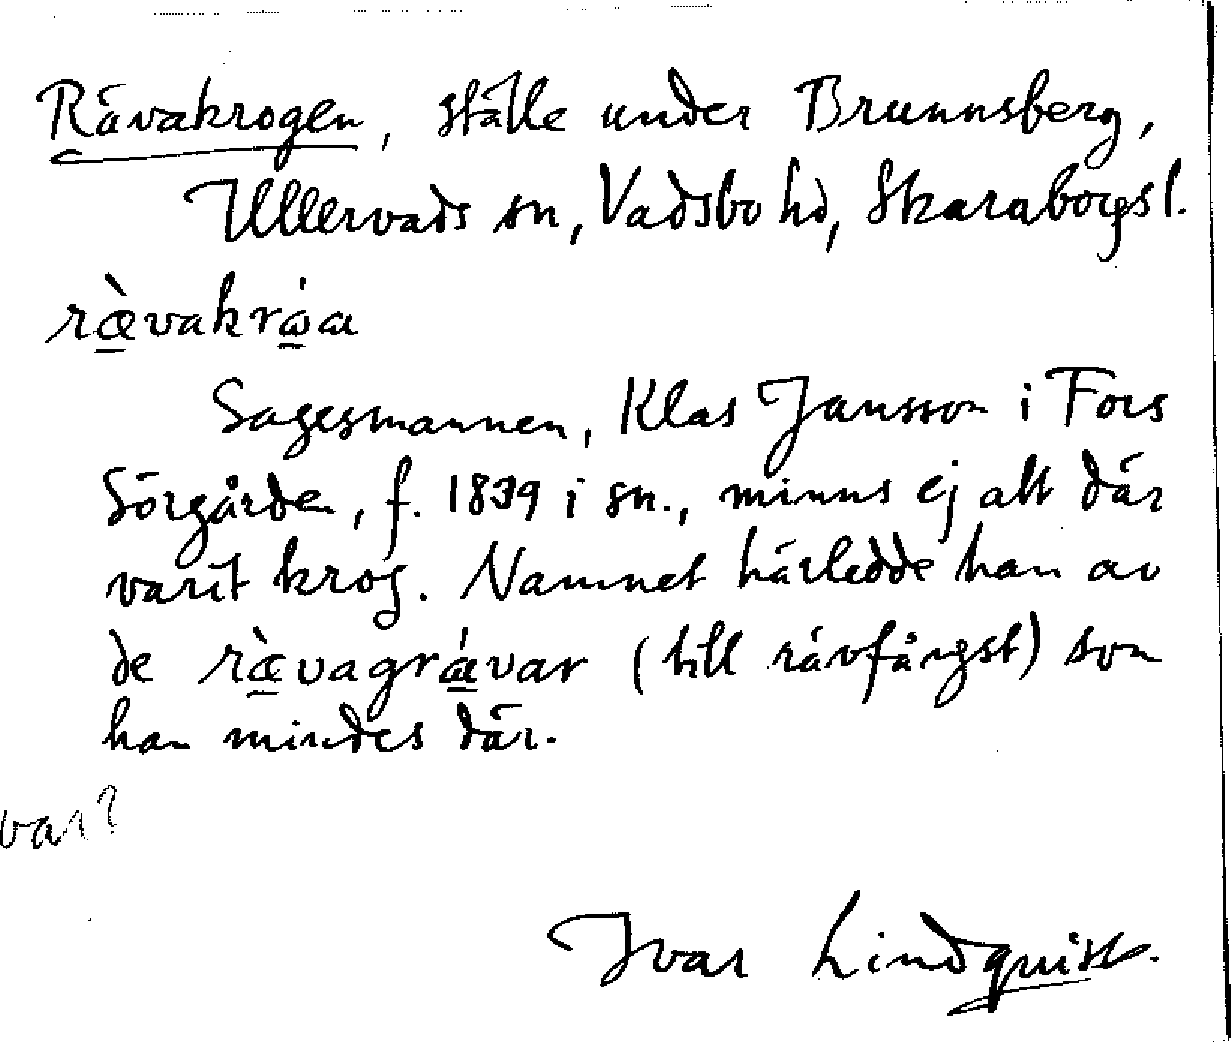 Rävakrogen, ställe under Brunnsberg,
Ullervads sn, Vadsbo hd, Skaraborgs l.
ræ̀vakrǻa
Sagesmannen, Klas Jansson i Fors
Sörgården, f. 1839 i sn., minns ej att där
varit krog. Namnet härledde han av
de ræ̀vagrávar (till rävfångst) som
han mindes där.
var?
Ivar Lindquist.